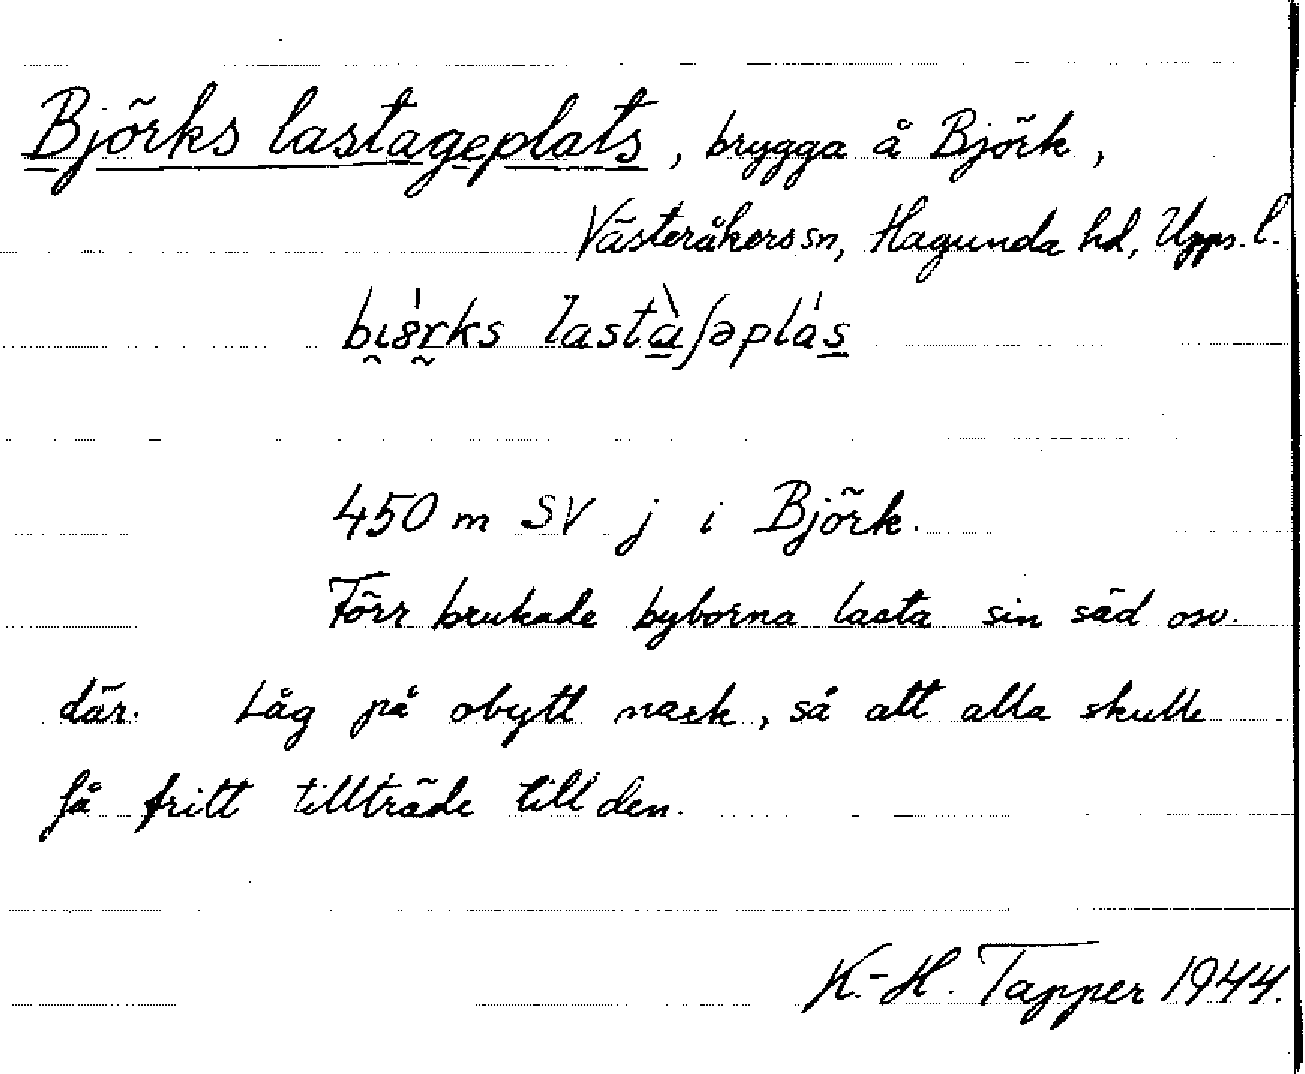 Björks lastageplats, brygga å Björk,
Västeråkers sn, Hagunda hd, Upps. l.
bɩ̯8r̰ks lastàʃəplás
450 m SV j i Björk.
Förr brukade byborna lasta sin säd osv.
där. Låg på obytt mark, så att alla skulle
få fritt tillträde till den.
K.-H. Tapper 1944.